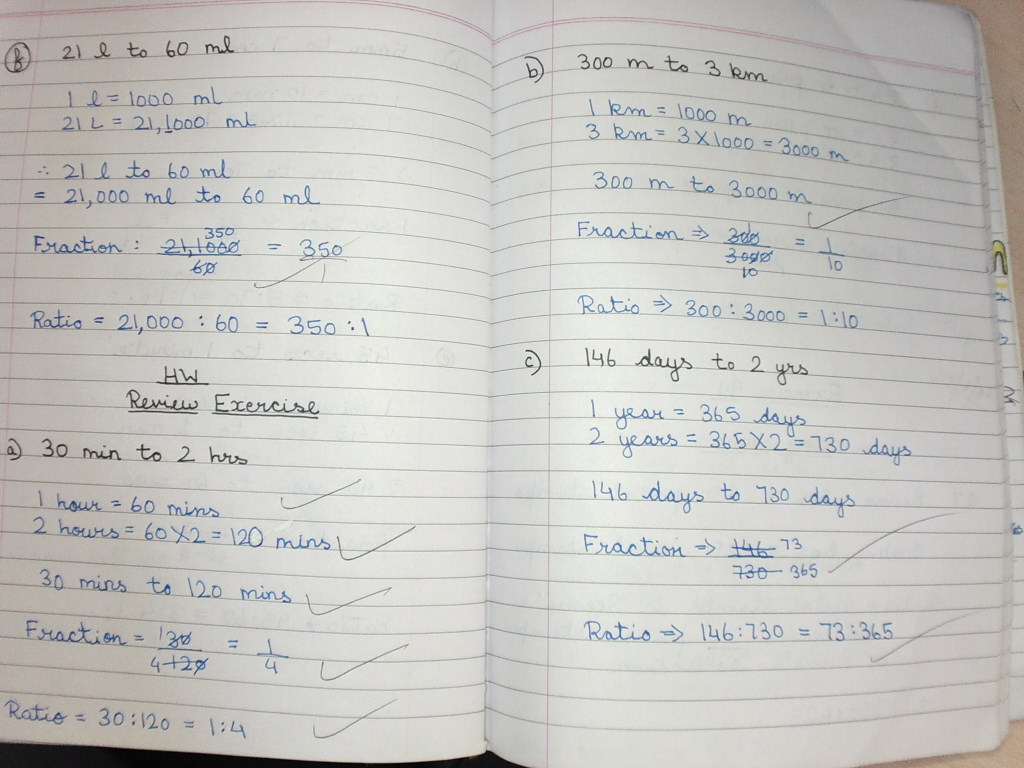 f) 21 l to 60 ml
1 l = 1000 ml
21 L = 21,1000 ml
∴ 21 l to 60 ml
= 21,000 ml to 60 ml
350
Fraction : 21,1000 = 350
60 1
Ratio = 21,000 : 60 = 350 : 1
HW
Review Exercise
a) 30 min to 2 hrs
1 hour = 60 mins
2 hours = 60 X 2 = 120 mins
30 mins to 120 mins
Fraction = 130 = 1
4+20 4
Ratio = 30 : 120 = 1 : 4
b) 300 m to 3 km
1 km = 1000 m
3 km = 3 X 1000 = 3000 m
300 m to 3000 m
Fraction ⇒ 300 = 1
3000 10
10
Ratio ⇒ 300 : 3000 = 1 : 10
c) 146 days to 2 yrs
1 year = 365 days
2 years = 365 X 2 = 730 days
146 days to 730 days
Fraction ⇒ 146 73
730 365
Ratio ⇒ 146 : 730 = 73 : 365